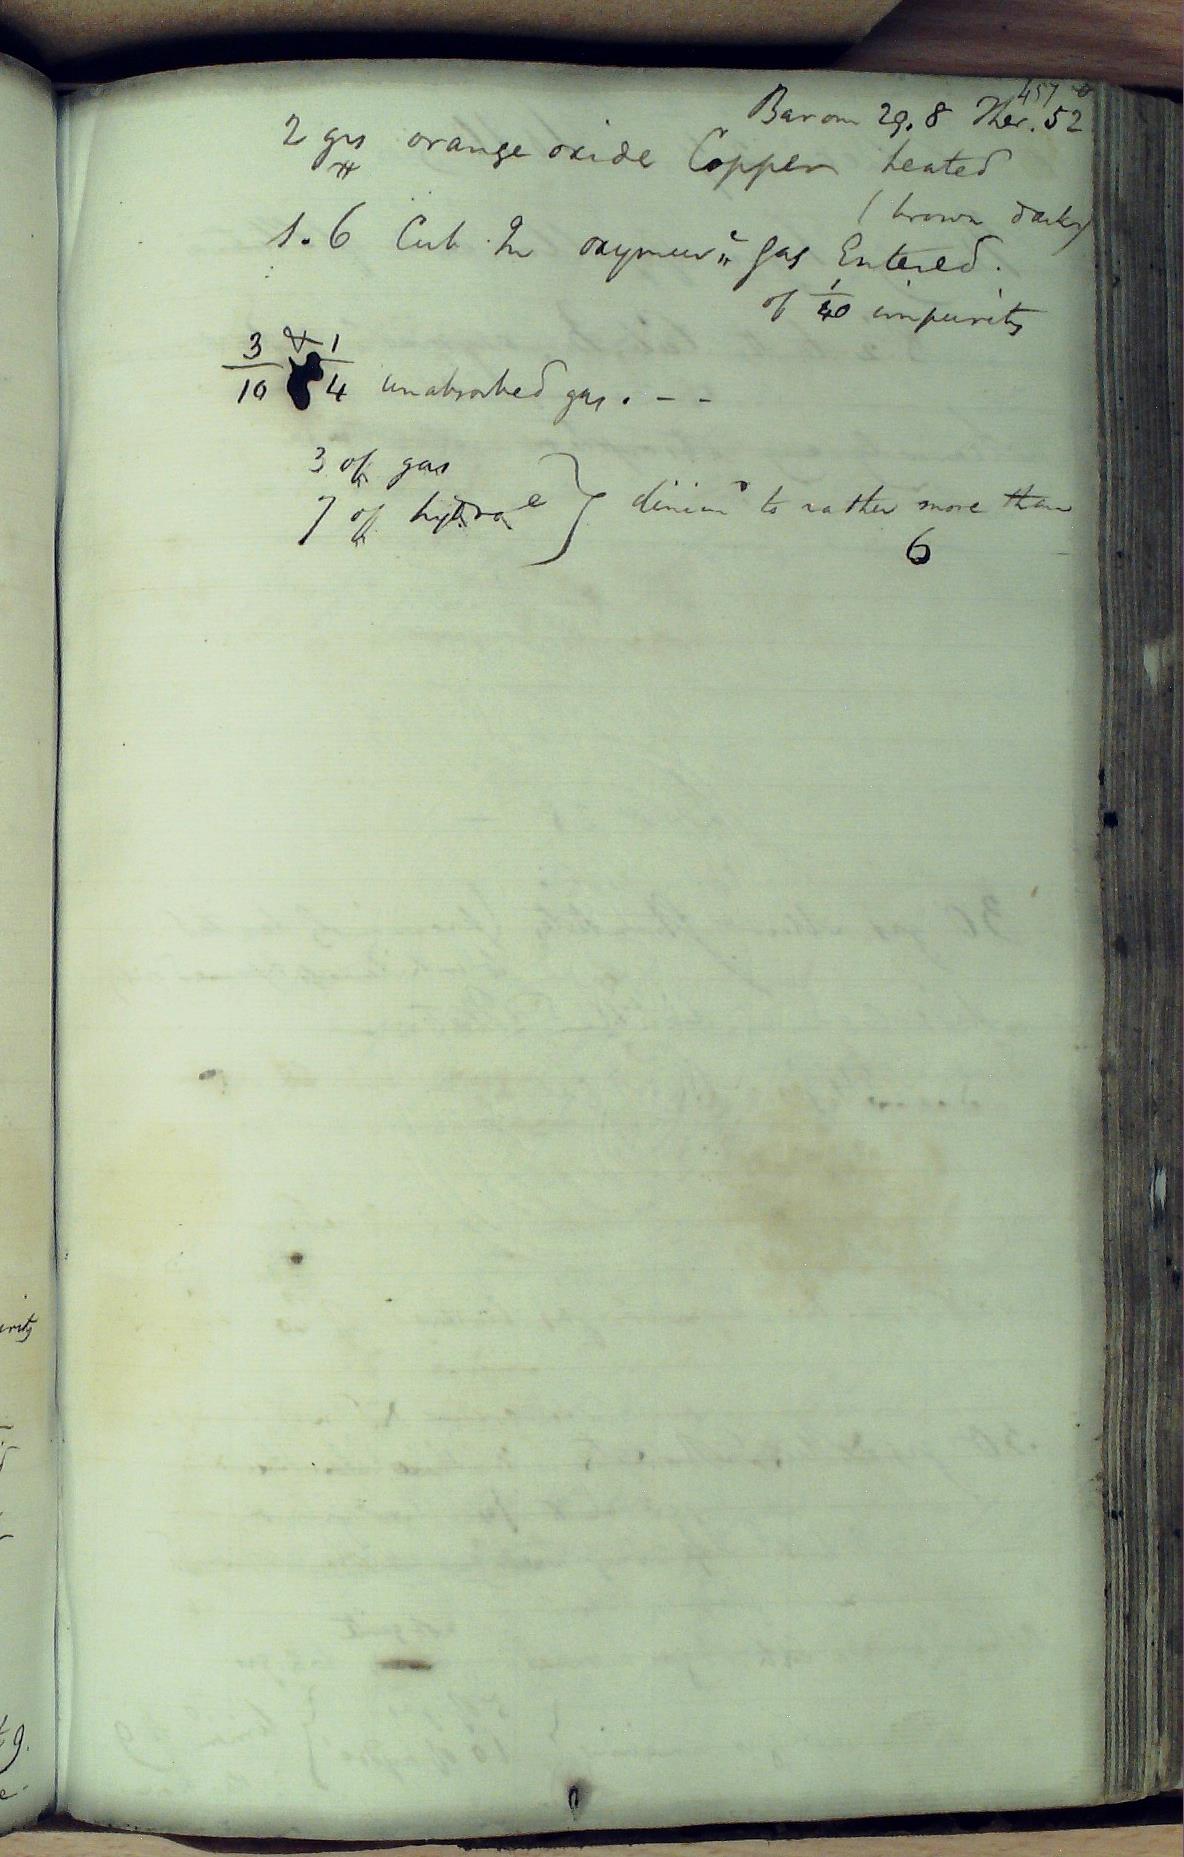 457
Barom 29.8 Ther. 52
2 grs orange oxide Copper heated
(brown dark)
1.6 Cub In oxymurc gas Entered.
of 1/40 impurity
3/10 & 1/4 unabsorbed gas. - -
3 of gas
7 of hydroe } dimind to rather more than
6